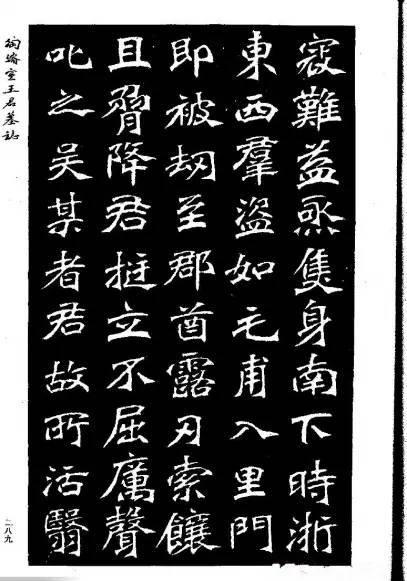 寇難益亟隻身南下時浙
東西羣盜如毛甫入里門
即被刧至郡酋露刃索饟
且脅降君挺立不屈厲聲
叱之吳某者君故所活醫
室王君墓志
二八九